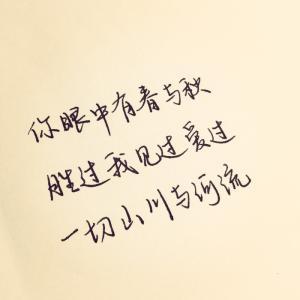 你眼中有春与秋
胜过我见过爱过
一切山川与河流